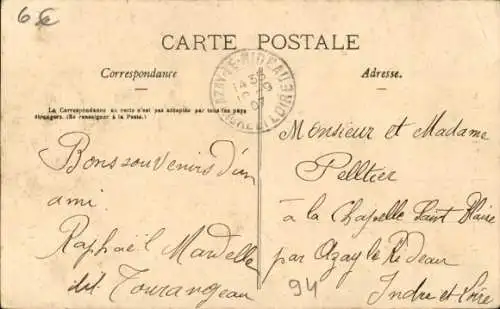 6€
CARTE POSTALE
Correspondance
Adresse.
AZAY-LE-RIDEAU
14 35
9
07
INDRE ET LOIRE
La Correspondance au recto n'est pas acceptée par tous les pays
étrangers. (Se renseigner à la Poste.)
Bons souvenirs d'un
ami
Raphaël Mardelle
dit Tourangeau
Monsieur et Madame
Pelltier
à la Chapelle Saint Blaise
par Azay le Rideau
Indre et Loire
94